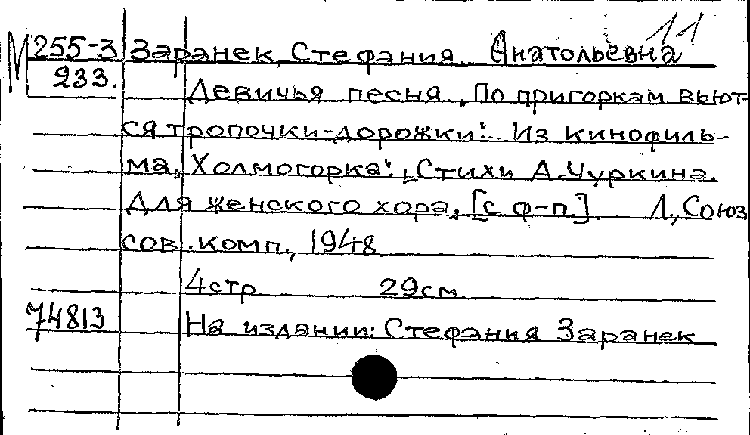 11
М 255-3 Заранек, Стефания Анатольевна
233. Девичья песня „По пригоркам вьют-
ся тропочки-дорожки". Из кинофиль-
ма „Холмогорка". Стихи А. Чуркина.
Для женского хора, [с ф-п.] Л., Союз
сов. комп., 1948
4 стр 29 см
74813 На издании: Стефания Заранек